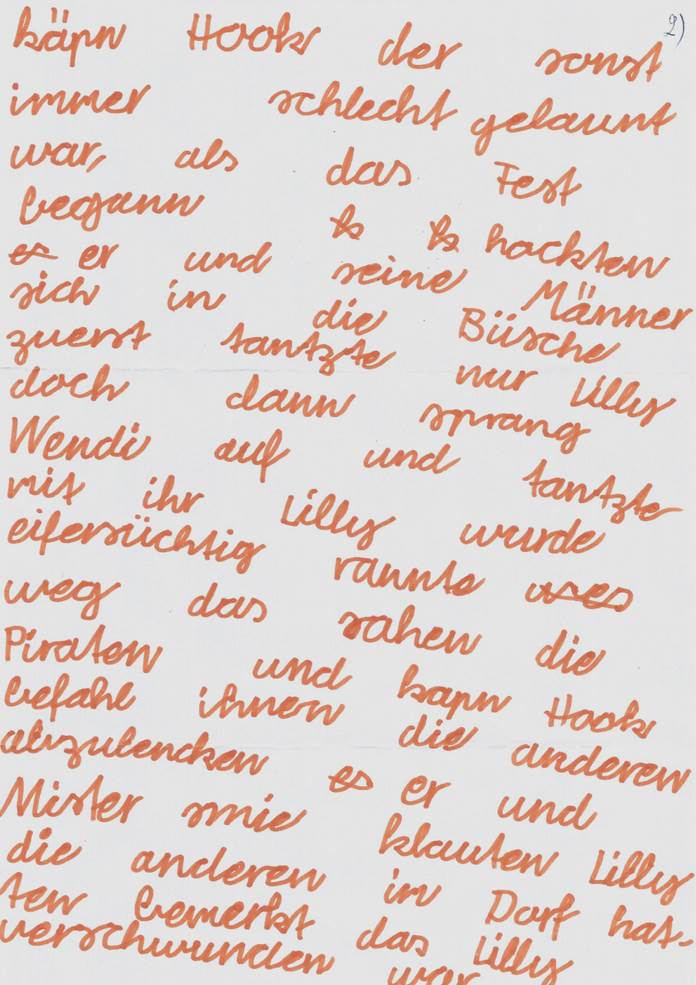 2)
käpn Hook der sonst
immer schlecht gelaunt
war, als das Fest
begann hockten
er und seine Männer
sich in die Büsche
zuerst tantzte nur Lilly
doch dann sprang
Wendi auf und tantzte
mit ihr Lilly wurde
eifersüchtig rannte
weg das sahen die
Piraten und kapn Hook
befahl ihnen die anderen
abzulencken er und
Mister smie klauten Lilly
die anderen im Dorf hat-
ten bemerkt das Lilly
verschwunden war